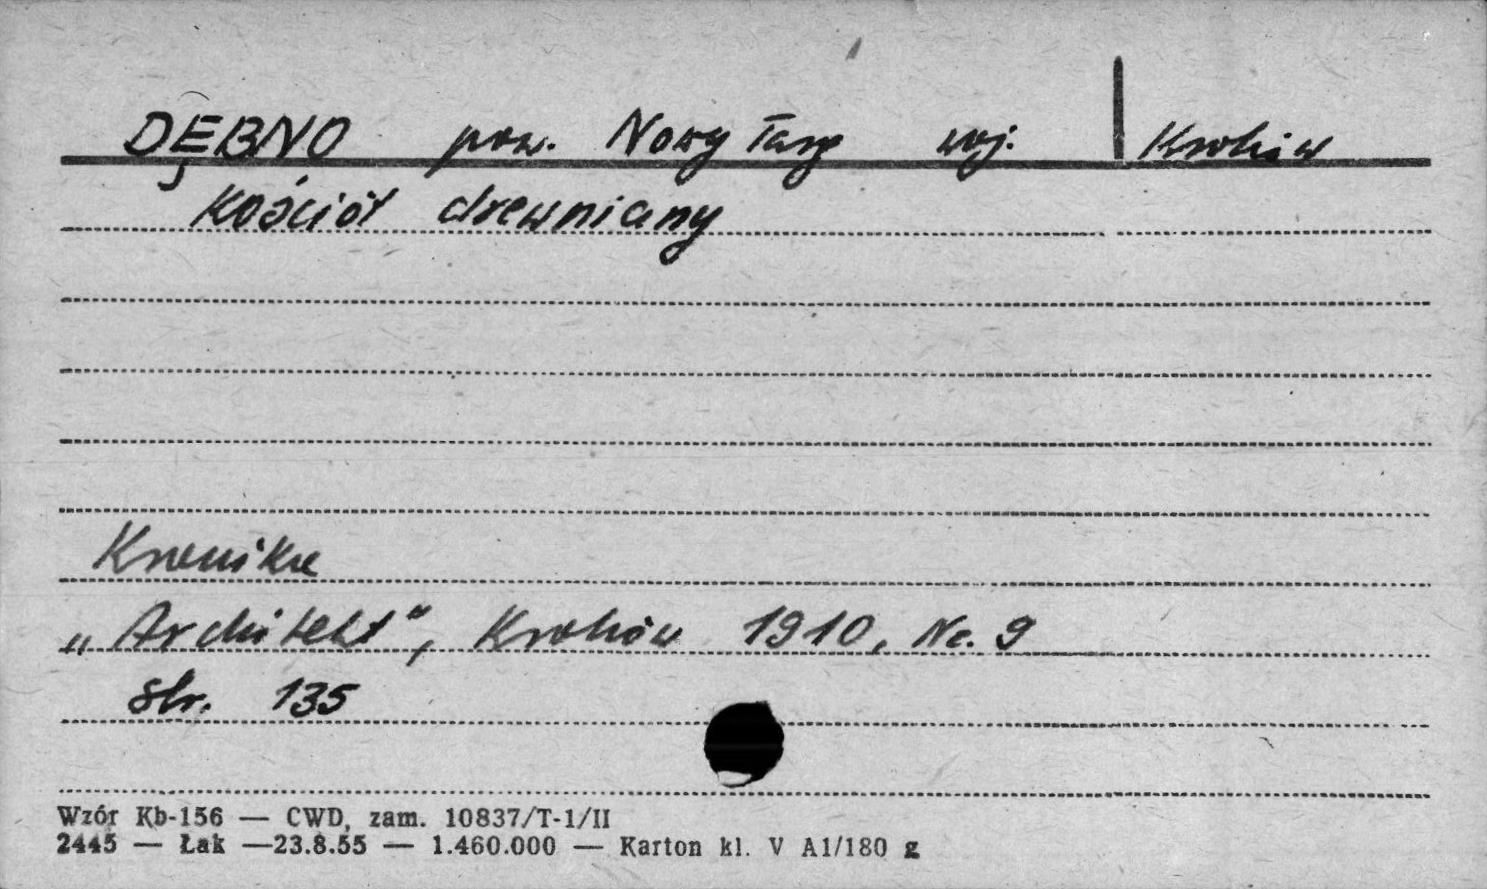 DĘBNO pow. Nowy Targ woj. Kraków
Kościół drewniany
Kronika
„Architekt", Kraków 1910, Nr. 9
str. 135
Wzór Kb-156 — CWD, zam. 10837/T-1/II
2445 — Łak —23.8.55 — 1.460.000 — Karton kl. V A1/180 g